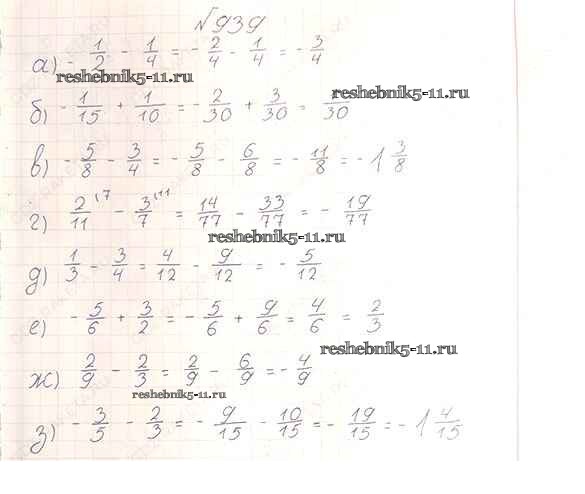 №939
а) - 1/2 - 1/4 = - 2/4 - 1/4 = - 3/4
reshebnik5-11.ru
reshebnik5-11.ru
б) - 1/15 + 1/10 = - 2/30 + 3/30 = /30
в) - 5/8 - 3/4 = - 5/8 - 6/8 = - 11/8 = - 1 3/8
г) 2/11 \7 - 3/7 \11 = 14/77 - 33/77 = - 19/77
reshebnik5-11.ru
д) 1/3 - 3/4 = 4/12 - 9/12 = - 5/12
е) - 5/6 + 3/2 = - 5/6 + 9/6 = 4/6 = 2/3
reshebnik5-11.ru
ж) 2/9 - 2/3 = 2/9 - 6/9 = - 4/9
reshebnik5-11.ru
з) - 3/5 - 2/3 = - 9/15 - 10/15 = - 19/15 = - 1 4/15